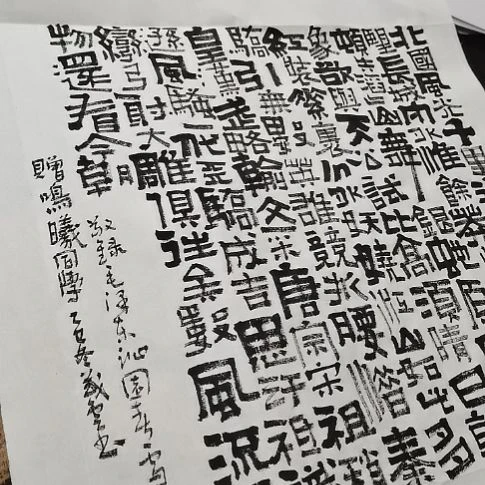 北國風光千里
長城內外惟餘莽
頓失滔滔山舞銀蛇原
象欲與天公試比高須晴日
紅裝素裹分外妖嬈江山如此多
驕引無數英雄競折腰惜秦
皇漢武略輸文采唐宗宋祖稍
遜風騷一代天驕成吉思汗識
彎弓射大雕俱往矣數風流
物還看今朝
敬錄毛澤東沁園春雪
贈鳴曦同學乙巳冬義雲書